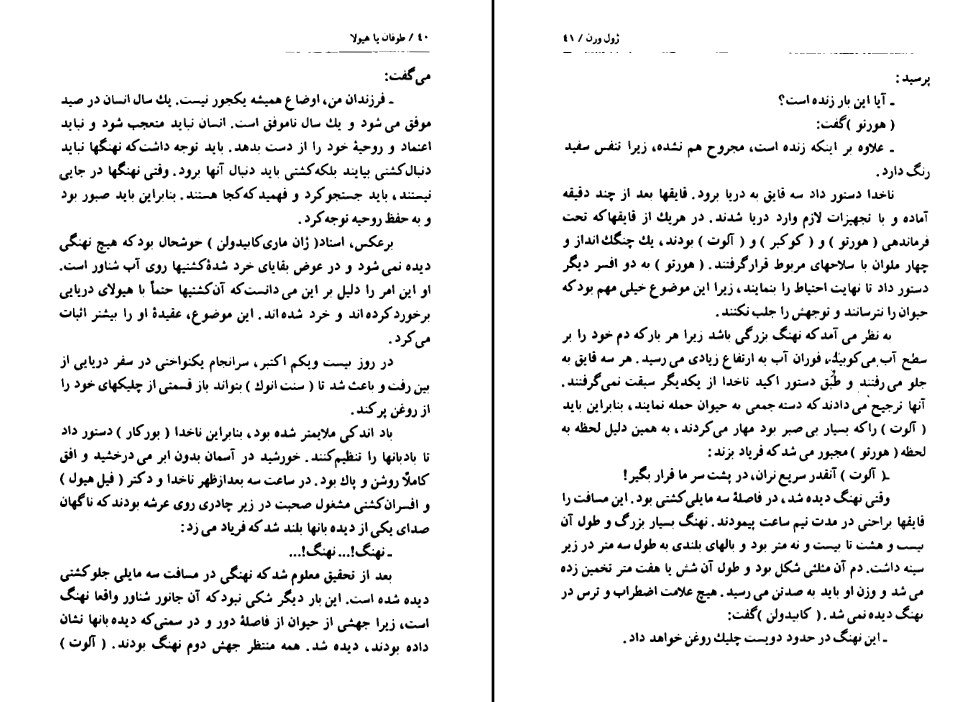 ۴۰ / طوفان یا هیولا
می‌گفت:
ـ فرزندان من، اوضاع همیشه یکجور نیست. یك سال انسان در صید
موفق می‌شود و یك سال ناموفق است. انسان نباید متعجب شود و نباید
اعتماد و روحیهٔ خود را از دست بدهد. باید توجه داشت‌که نهنگها نباید
دنبال‌کشتی بیایند بلکه‌کشتی باید دنبال آنها برود. وقتی نهنگها در جایی
نیستند، باید جستجو کرد و فهمید که‌کجا هستند. بنابراین باید صبور بود
و به حفظ روحیه توجه‌کرد.
برعکس، استاد( ژان ماری‌کابیدولن ) خوشحال بود که هیچ نهنگی
دیده نمی‌شود و در عوض بقایای خرد شدهٔ‌کشتیها روی آب شناور است.
او این امر را دلیل بر این می‌دانست‌که آن‌کشتیها حتماً با هیولای دریایی
برخورد کرده‌اند و خرد شده‌اند. این موضوع، عقیدهٔ او را بیشتر اثبات
می‌کرد.
در روز بیست ویکم اکتبر، سرانجام یکنواختی در سفر دریایی از
بین رفت و باعث شد تا ( سنت انوك ) بتواند باز قسمتی از چلیکهای خود را
از روغن پر کند.
باد اندکی ملایمتر شده بود، بنابراین ناخدا ( بورکار ) دستور داد
تا بادبانها را تنظیم‌کنند. خورشید در آسمان بدون ابر می‌درخشید و افق
کاملاً روشن و پاك بود. در ساعت سه بعدازظهر ناخدا و دکتر ( فیل هیول )
و افسران‌کشتی مشغول صحبت در زیر چادری روی عرشه بودند که ناگهان
صدای یکی از دیده بانها بلند شد که فریاد می‌زد:
ـ نهنگ!... نهنگ!...
بعد از تحقیق معلوم شد که نهنگی در مسافت سه مایلی جلو کشتی
دیده شده است. این بار دیگر شکی نبود که آن جانور شناور واقعا نهنگ
است، زیرا جهشی از حیوان از فاصلهٔ دور و در سمتی‌که دیده بانها نشان
داده بودند، دیده شد. همه منتظر جهش دوم نهنگ بودند. ( آلوت )
ژول ورن / ۴۱
پرسید:
ـ آیا این بار زنده است؟
( هورتو )گفت:
ـ علاوه بر اینکه زنده است، مجروح هم نشده، زیرا تنفس سفید
رنگ دارد.
ناخدا دستور داد سه قایق به دریا برود. قایقها بعد از چند دقیقه
آماده و با تجهیزات لازم وارد دریا شدند. در هریك از قایقها که تحت
فرماندهی ( هورتو ) و ( کوکبر ) و ( آلوت ) بودند، یك چنگك انداز و
چهار ملوان با سلاحهای مربوط قرارگرفتند. ( هورتو ) به دو افسر دیگر
دستور داد تا نهایت احتیاط را بنمایند، زیرا این موضوع خیلی مهم بود که
حیوان را نترسانند و توجهش را جلب نکنند.
به نظر می‌آمد که نهنگ بزرگی باشد زیرا هر بار که دم خود را بر
سطح آب می‌کوبید، فوران آب به ارتفاع زیادی می‌رسید. هر سه قایق به
جلو می‌رفتند و طبق دستور اکید ناخدا از یکدیگر سبقت نمی‌گرفتند.
آنها ترجیح می‌دادند که دسته جمعی به حیوان حمله نمایند، بنابراین باید
( آلوت ) را که بسیار بی‌صبر بود مهار می‌کردند، به همین دلیل لحظه به
لحظه ( هورتو ) مجبور می‌شد که فریاد بزند:
ـ( آلوت ) آنقدر سریع نران، در پشت سر ما قرار بگیر!
وقتی نهنگ دیده شد، در فاصلهٔ سه مایلی‌کشتی بود. این مسافت را
قایقها براحتی در مدت نیم ساعت پیمودند. نهنگ بسیار بزرگ و طول آن
بیست و هشت تا بیست و نه متر بود و بالهای بلندی به طول سه متر در زیر
سینه داشت. دم آن مثلثی شکل بود و طول آن شش یا هفت متر تخمین زده
می‌شد و وزن او باید به صدتن می‌رسید. هیچ علامت اضطراب و ترس در
نهنگ دیده نمی‌شد. ( کابیدولن )گفت:
ـ این نهنگ در حدود دویست چلیك روغن خواهد داد.